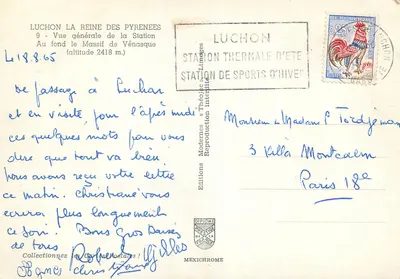 LUCHON LA REINE DES PYRENEES
9 - Vue générale de la Station
Au fond le Massif de Vénasque
(altitude 2418 m.)
LUCHON
STATION THERMALE D'ETE
STATION DE SPORTS D'HIVER
le 18.8.65
De passage à Luchon
et en visite, pour l'après midi
ces quelques mots pour vous
dire que tout va bien.
nous avons reçu votre lettre
ce matin. Christiane vous
écrira plus longuement
ce soir. Bons Gros Baisers
de tous
Robert Gilles
Christiane
Monsieur & Madame
3 Villa Montcalm
Paris 18e
Editions Modernes Théojac Limoges
Reproduction Interdite
MEXICHROME